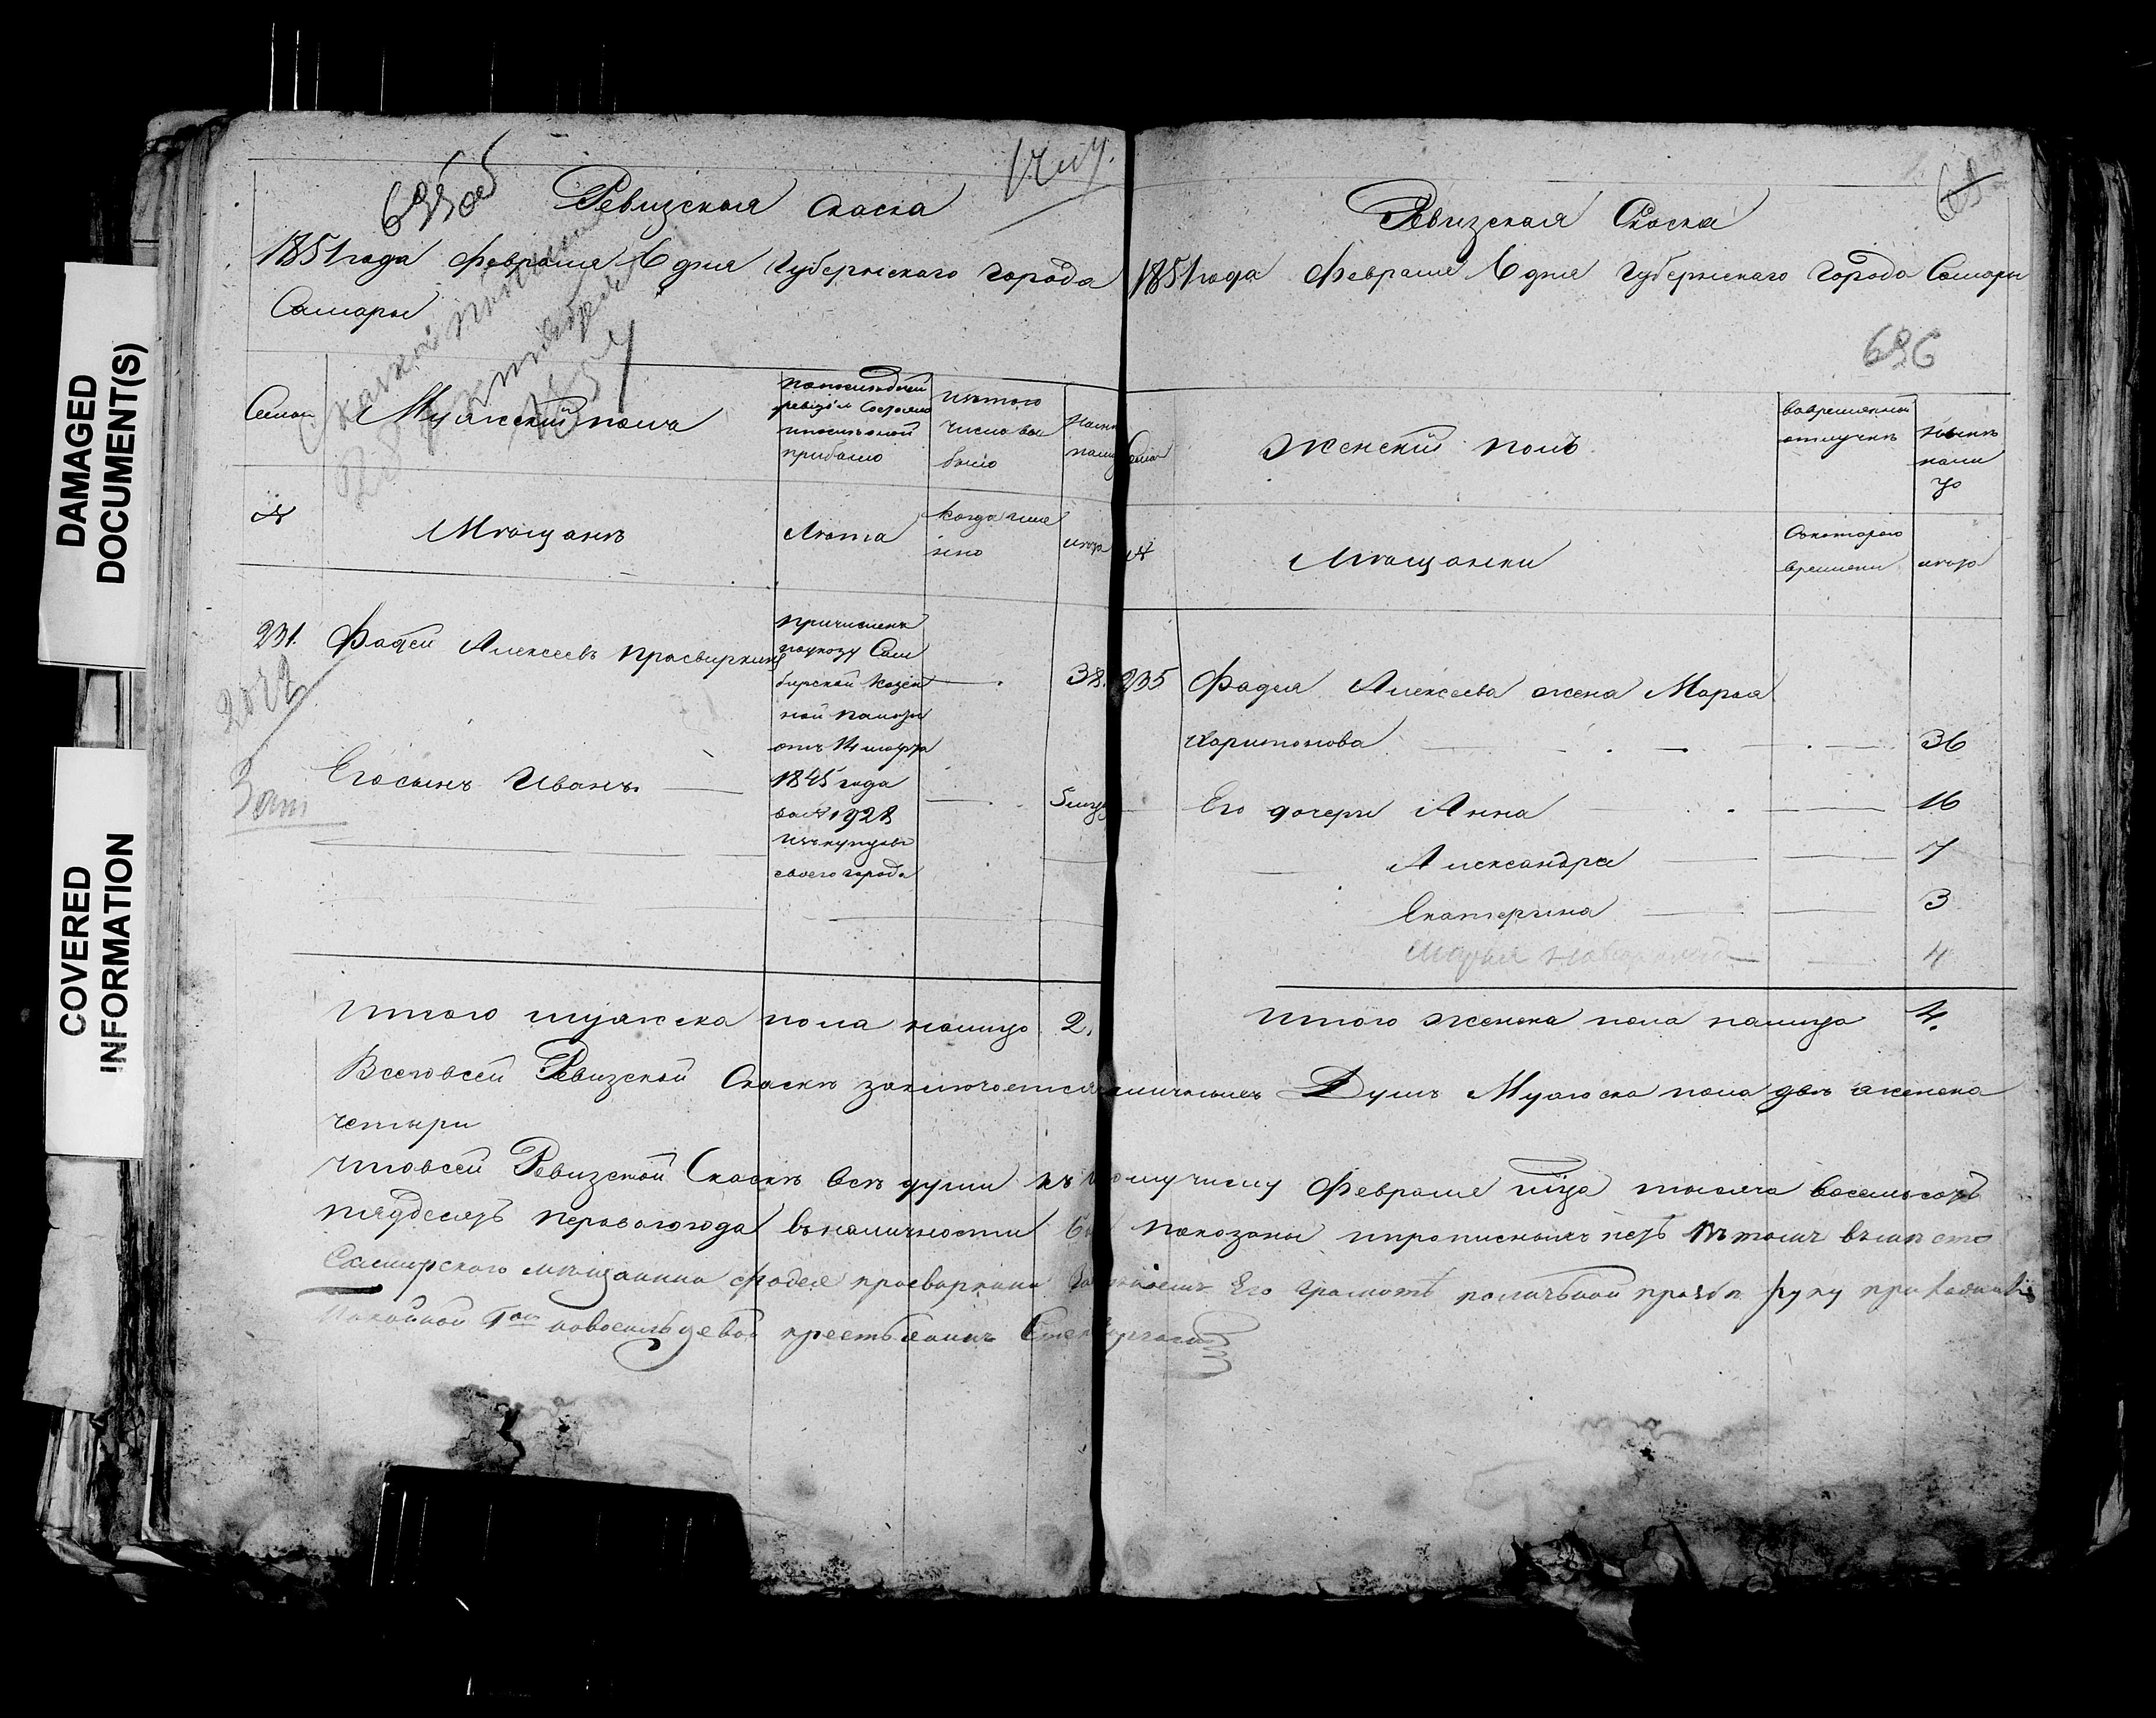 DAMAGED
DOCUMENT(S)
COVERED
INFORMATION
695об
Ревизская скаска
1851 года февраля 6 дня Губернскаго города
Самары
Семьи
Мужеский пола
по последней
ревизии состояло
и после оной
прибыло
Из того
числа вы
было
Ныне
налицо
№
Мещане
Лета
когда име
нно
лета
231.
Фадей Алексеев Просвиркин
причислен
по указу Сим
бирской Казен
ной Палаты
от 14 марта
1845 года
за № 1928
из купцов
своего города
38.
Его сын Иван.
5 мцв
Итого мужеска пола налицо 2.
Ревизская Скаска
1851 года Февраля 6 дня Губернскаго города Самары
696
Семьи
Женский пол
во временной
отлучке
Ныне
нали
цо
№
Мещанки
С котораго
времени
лета
235
Фадея Алексеева жена Марья
Харитонова
36
Его дочери Анна
16
Александра
7
Екатерина
3
4
Итого женска пола налицо 4.
Всего в сей Ревизской Скаске заключается наличных Душ Мужеска пола две женска
четыри
Что в сей Ревизской Скаске все души к тому числу Февраля мца тысяча восемьсот
пяддесят перваго года в наличности показаны и прописных нет в том вместо
Самарского мещанина Фадея просвиркина Его грамоте по личной прозбе руку приложил
крестьянин